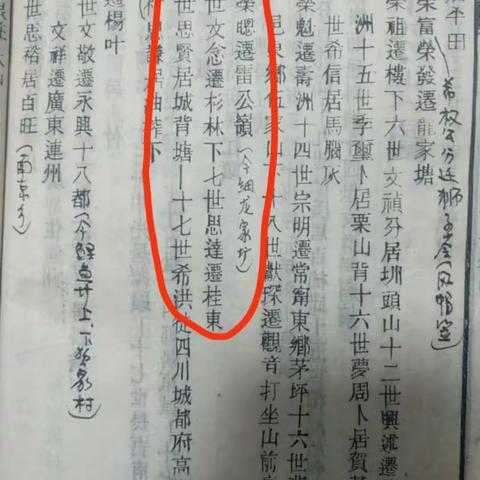 平田
希权公分迁狮子岭凤帽窝
榮富榮發遷龍家塘
榮祖遷樓下六世文禎分居圳頭山十二世興述遷
洲十五世季璽卜居栗山背十六世夢周卜居賀
世希信居馬腦灰
榮魁遷壽洲十四世宗明遷常甯東鄉茅坪十六世
邑東鄉伍家山十八世獻琛遷觀音打坐山前
榮聰遷雷公嶺（今细龙家圢）
世文念遷杉林下七世思達遷桂東
世思賢居城背塘十七世希洪從四川城都府高
思謙居油榨下
遷楊叶
世文敬遷永興十八都（今鲤鱼井上、下龙家村）
文祥遷廣東連州
世思裕居百旺